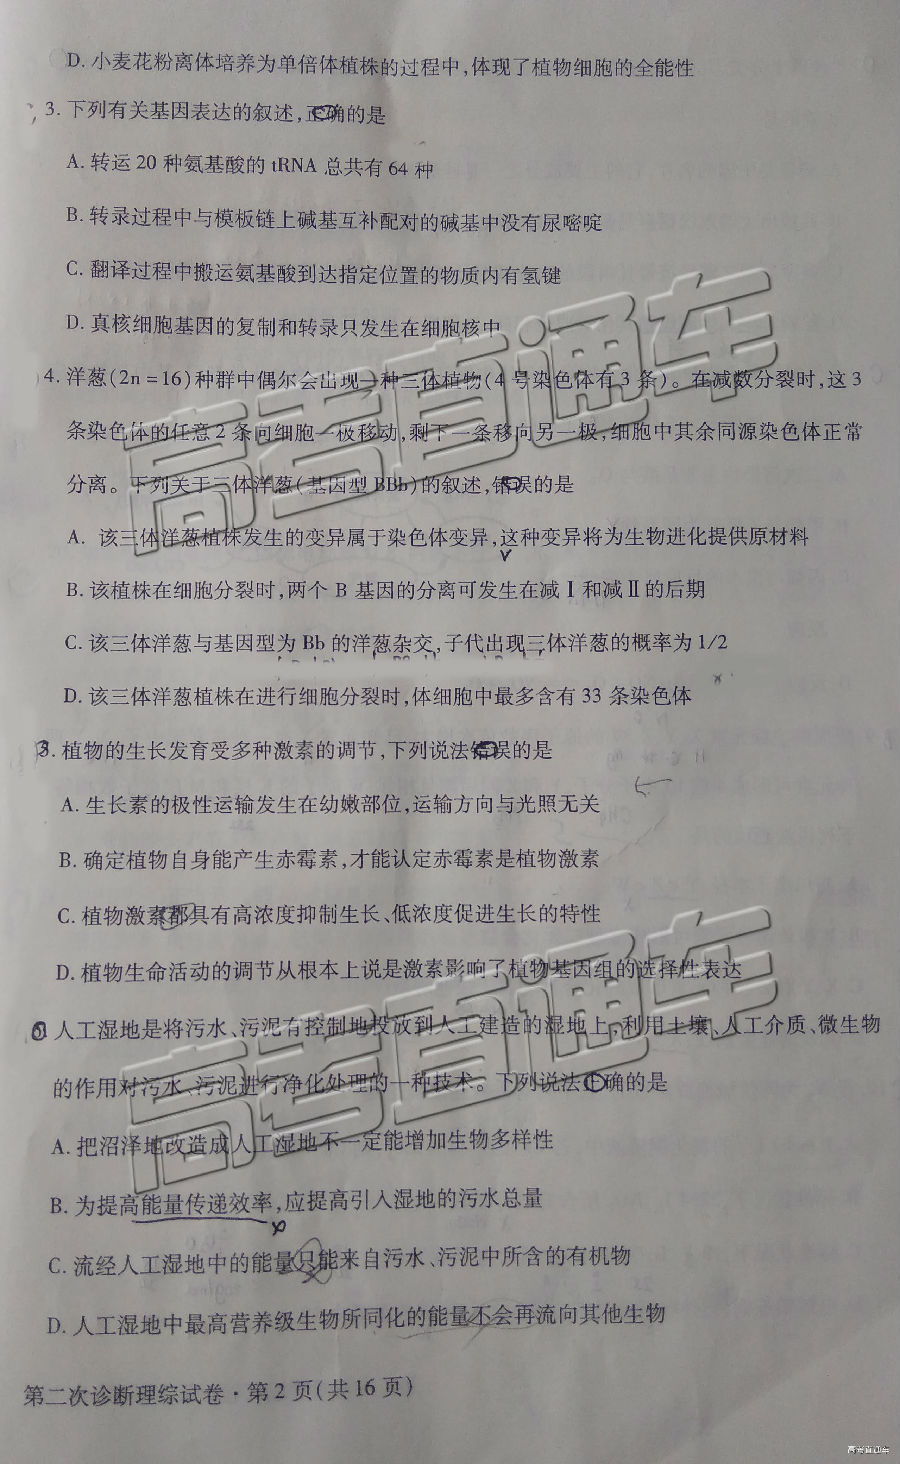 D. 小麦花粉离体培养为单倍体植株的过程中,体现了植物细胞的全能性
3. 下列有关基因表达的叙述,正确的是
A. 转运 20 种氨基酸的 tRNA 总共有 64 种
B. 转录过程中与模板链上碱基互补配对的碱基中没有尿嘧啶
C. 翻译过程中搬运氨基酸到达指定位置的物质内有氢键
D. 真核细胞基因的复制和转录只发生在细胞核中
4. 洋葱(2n=16)种群中偶尔会出现一种三体植物(4 号染色体有 3 条)。在减数分裂时,这 3
条染色体的任意 2 条向细胞一极移动,剩下一条移向另一极,细胞中其余同源染色体正常
分离。下列关于三体洋葱(基因型 BBb)的叙述,错误的是
A. 该三体洋葱植株发生的变异属于染色体变异,这种变异将为生物进化提供原材料
B. 该植株在细胞分裂时,两个 B 基因的分离可发生在减Ⅰ和减Ⅱ的后期
C. 该三体洋葱与基因型为 Bb 的洋葱杂交,子代出现三体洋葱的概率为 1/2
D. 该三体洋葱植株在进行细胞分裂时,体细胞中最多含有 33 条染色体
5. 植物的生长发育受多种激素的调节,下列说法错误的是
A. 生长素的极性运输发生在幼嫩部位,运输方向与光照无关
B. 确定植物自身能产生赤霉素,才能认定赤霉素是植物激素
C. 植物激素都具有高浓度抑制生长、低浓度促进生长的特性
D. 植物生命活动的调节从根本上说是激素影响了植物基因组的选择性表达
人工湿地是将污水、污泥有控制地投放到人工建造的湿地上,利用土壤、人工介质、微生物
的作用对污水、污泥进行净化处理的一种技术。下列说法正确的是
A. 把沼泽地改造成人工湿地不一定能增加生物多样性
B. 为提高能量传递效率,应提高引入湿地的污水总量
C. 流经人工湿地中的能量只能来自污水、污泥中所含的有机物
D. 人工湿地中最高营养级生物所同化的能量不会再流向其他生物
第二次诊断理综试卷·第 2 页(共 16 页)
高考直通车
高考直通车
高考直通车